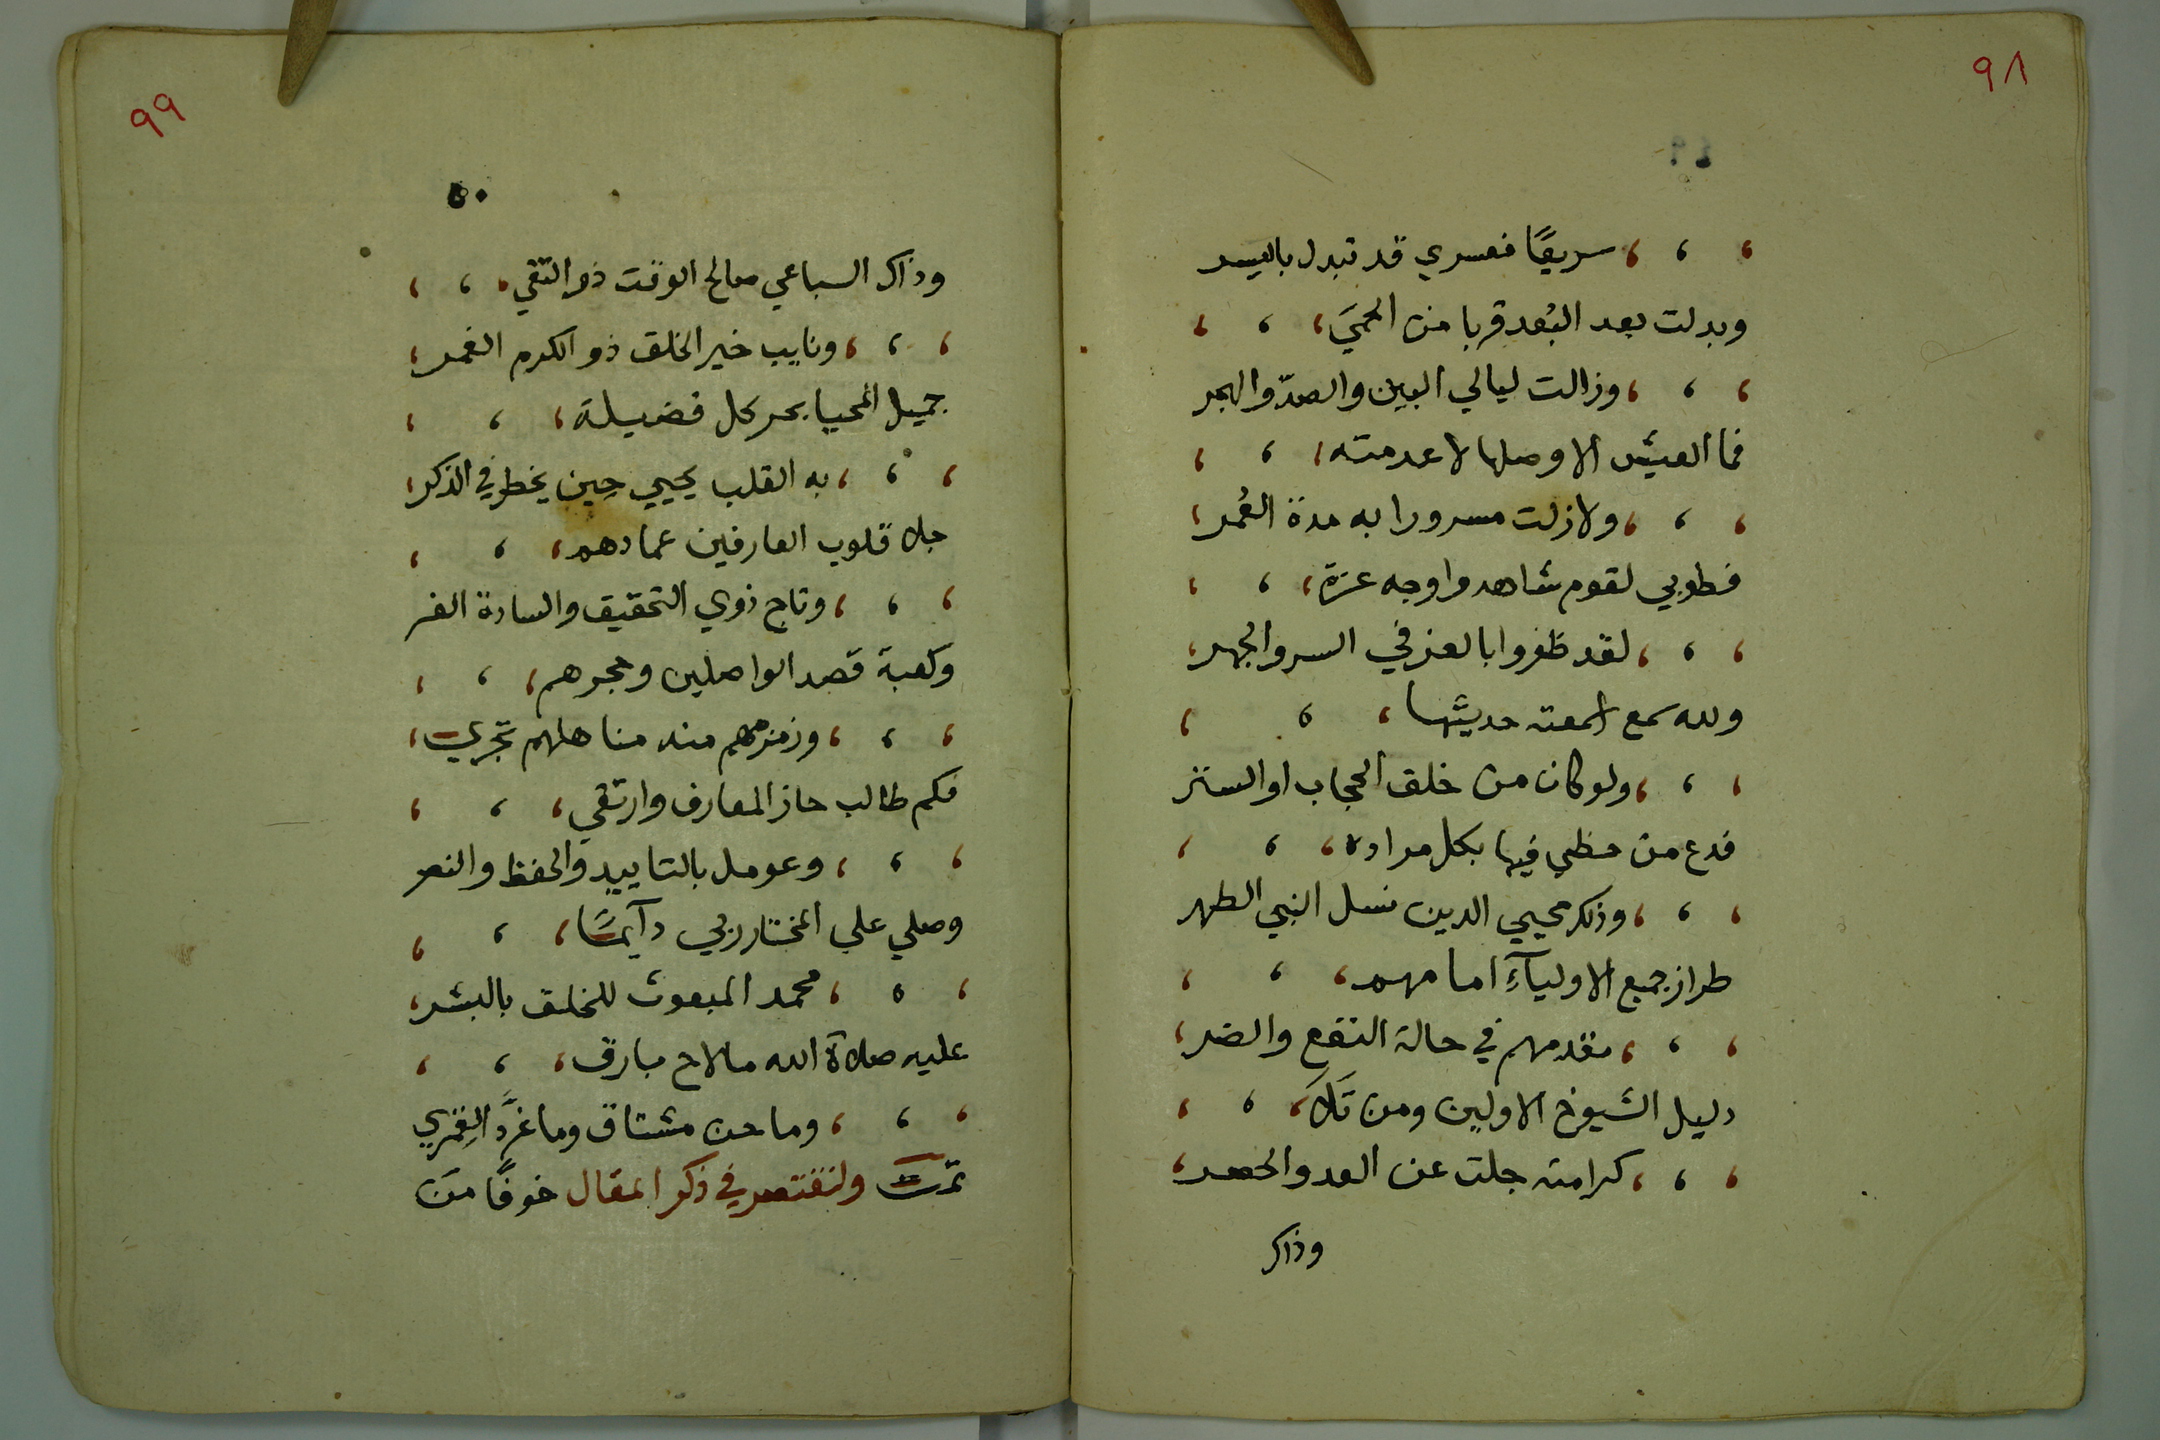 ٩٨
٤٩
سريعًا فعسري قد تبدل باليسر
وبدلت بعد البُعد قربا من الحمَي،
وزالت ليالي البين والصدّ والهجر
فما العيش الا وصلها لا عدمته،
ولازلت مسرورا به مدة العُمر،
فطوبي لقوم شاهدوا وجه عزة،
لقد ظفروا بالعز في السر والجهر،
ولله سمع حديثها،
ولو كان من خلف الحجاب او الستر
فدع من حظي فيها بكل مراده،
وذكر محيي الدين نسل النبي الطهر
طراز جميع الاوليآءِ امامهم،
مقدمهم في حالة النفع والضر،
دليل الشيوخ الاولين ومن تَلاَ،
كرامته جلت عن العد والحصر،
وذاكر
٩٩
٥٠
وذاك السباعي صالح الوقت ذو التقي،
ونايب خير الخلق ذو الكرم الغمر،
جميل المحيا بحر كل فضيلة،
به القلب يحيي حين يخطر في الذكر،
جلا قلوب العارفين عمادهم،
وتاج ذوي التحقيق والسادة الغر
وكعبة قصد الواصلين وحجرهم،
وزمزمهم منه مناهلهم تجري،
فكم طالب حاز المعارف وارتقي،
وعومل بالتاييد والحفظ والنصر
وصلي علي المختار ربي دآيمًا،
محمد المبعوث للخلق بالبشر،
عليه صلاة الله ما لاح بارق،
وما حن مشتاق وما غرَّد القمري
تمت ولنقتصر في ذكر المقال خوفًا من